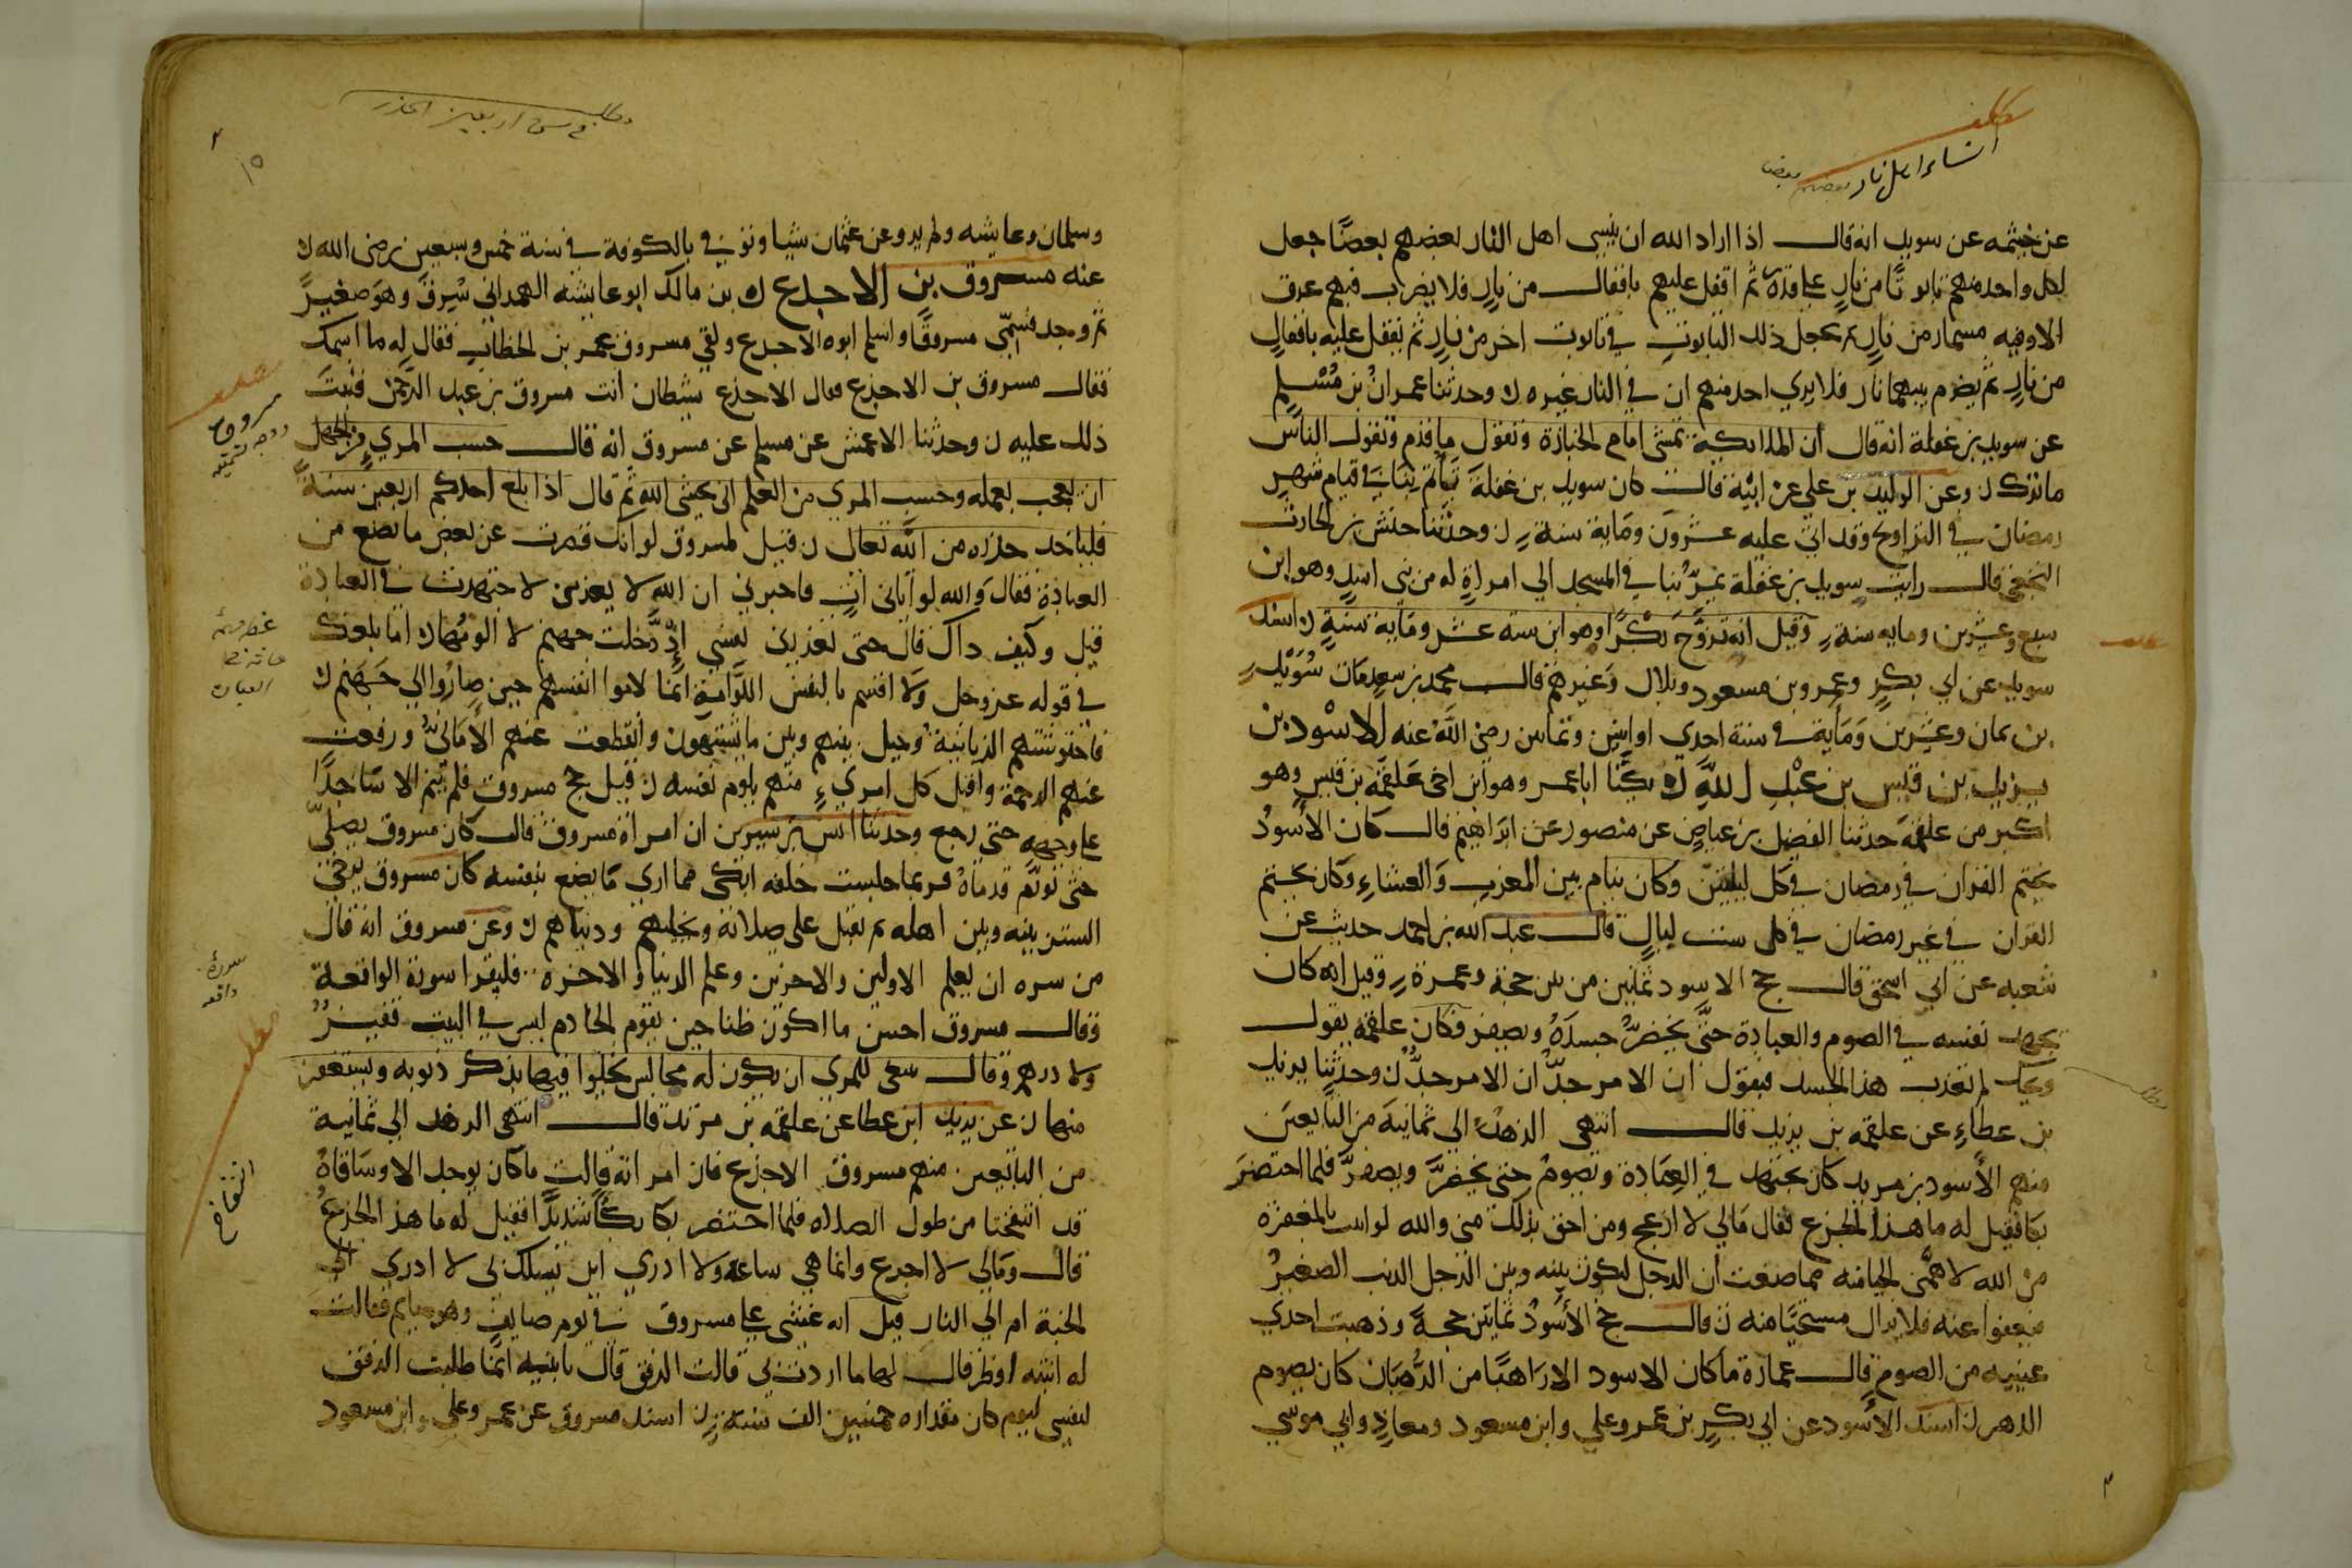 انساء اهل نار بعضهم بعضا
عن خيثمه عن سويد انه قال اذا اراد الله ان ينسى اهل النار بعضهم بعضًا جعل
لكل واحد منهم تابوتًا من نارٍ على قدره ثم اقفل عليهم باقفال من نارٍ فلا يضرب منهم عرق
الا وفيه مسمار من نارٍ ثم يجعل ذلك التابوت في تابوت اخر من نارٍ ثم يقفل عليه باقفالٍ
من نارٍ ثم يضرم بينهما نار فلا يري احد منهم ان في النار غيره ن وحدثنا عمران بن مُسْلِم
عن سويد بن غفلة انه قال ان الملائكة تمشي امام الجنازة وتقول ما قدم وتقول الناس
ما ترك ن وعن الوليد بن علي عن ابيْه قال كان سويد بن غفلة يَأُم بنا في قيام شهر
رمضان في التراويح وقد اتى عليه عشرون ومَاية سنة ن وحدثنا حنش بن الحارث
النخعي قال رايت سويد بن غفلة يمرُّ بنا في المسجد الي امراةٍ له من بني اسدٍ وهو ابن
سبع وعشرين ومايه سنة وقيل انه تزوَّجَ بكْرًا وهو ابن ستة عشر ومَاية سنةٍ ن اسند
سويد عن ابي بكرٍ وعمر وبن مسعود وبلال وَغيرهم قال محمد بن سعد مَات سُوَيْد
بن ثمان وعشرين وَمَاية في سنة احدي او اثنين وثمانين رضي اللَّهُ عنه الاسْود بن
يزيد بن قيس بن عبْد اللَّهِ ن يكنا ابا عمر وهو ابن اخي عَلقمَة بن قيسٍ وهو
اكبر من علقمَة حدثنا الفضيل بن عياضٍ عن منصور عن ابرَاهيْم قال كان الأسودُ
يختم القران في رمضان في كل ليلتين وكان ينام بين المغرب وَالعشاءِ وكان يختم
القران في غير رمضان في كل ست ليالٍ قال عبد الله بن احمد حديث عن
شعبه عن ابي اسحق قال حج الاسود ثمانين من بين حجة وعمرة وقيل انه كان
يجهد نفسه في الصوم والعبادة حتَّى يخضرَّ جسدَهُ ويصفر وكان علقمه يقول
ويحك لم تعذب هذا الجسد فيقول ان الامر جدٌّ ان الامر جدٌّ ن وحدثنا يزيد
بن عطاءٍ عن علقمه بن يزيد قال انتهى الزهْدُ الي ثمانية من التابعين
منهم الأسود بن مريد كان يجتهد في العبَادة ويصومُ حتى يخضرَّ ويصفرَّ فلما احتضرَ
بكا فقيل له ما هذا الجزع فقال مَالي لا اجزع ومن احق بذلك مني والله لو اتيت بالمغفرة
من الله لاهمَّني الحيا منه مما صنعت ان الرجل ليكون بينه وبين الرجل الذنب الصغيرُ
فيعفوا عنه فلا يزال مستحيًا منه ن قال حج الأسْودُ ثمانين حجةً وذهبت احدي
عينيه من الصوم قال عمارة ما كان الاسود الا رَاهبًا من الرُّهبَان كان يصوم
الدهر ن اسند الأسود عن ابي بكرٍ بن عمر وعلي وابن مسعود ومعاذٍ وابي موسي
١٥
وسلمان وعايشه ولم يرو عن عثمان شيا وتوفي بالكوفة في سنة خمس وسبعين رضي الله
عنه مسروق بن الاجدع ن بن مالك ابو عايشه الهمداني سُرِقَ وهوَ صغيرٌ
ثم وجد فسُمّى مسروقًا واسلم ابوه الاجدع ولقي مسروق عمر بن الخطاب فقال له ما اسمك
فقال مسروق بن الاجدع فقال الاجدع شيطان انت مسروق بن عبد الرحمن فثبتَ
ذلك عليه ن وحدثنا الاعمش عن مسلم عن مسروق انه قال حسب المريءِ من الجهل
ان يعجب بعمله وحسب المري من العلم ان يخشى الله ثم قال اذا بلغ احدكم اربعين سنةً
فلياخذ حذره من الله تعالى ن قيل لمسروق لو انك قصرت عن بعض ما تصنع من
العبادة فقال وَالله لو اتاني اتٍ فاخبرني ان الله لا يعذبني لاجتهدت في العبادة
قيل وكيف ذاك قال حتى تعذرني نفسي إذّ دَّخلت جهنم لا الومُها ن اما بلغك
في قوله عز وجل وَلا اقسم بالنفس اللوَّامةِ انمَا لاموا انفسهم حين صارُوا الي جَهَنم ن
فاحتوشتهم الزبانيةُ وحيل بينهم وبين ما يشتهون وانقطعت عنهم الأمَانيُّ ورفعت
عنهم الرحمة واقبل كل امريءٍ منهم يلوم نفسه ن قيل حج مسروق فلم ينم الا سَاجدًا
على وجهه حتى رجع وحدثنا انس بن سيرين ان امراة مسروق قالت كان مسروق يصلي
حتى تورَّم قدمَاهُ فربما جلست خلفه ابكى مما اري مَا يصنع بنفسه كان مسروق يرخى
الستر بينه وبين اهله ثم يقبل على صلاته ويخليهم ودنياهم ن وعن مسروق انه قال
من سره ان يعلم الاولين والاخرين وعلم الدنيا والاخرة فليقرا سورة الواقعة
وقال مسروق احسن ما اكون ظنا حين يقوم الخادم ليس في البيت قفيزٌ
ولا درهم وقال ينبغى للمرى ان يكون له مجالس يخلوا فيها يذكر ذنوبه ويستغفر
منها ن عن يزيد ابن عطا عن علقمه بن مرثد قال انتهى الزهد الي ثمانية
من التابعين منهم مسروق الاجزع فان امراته قالت ما كان يوجد الا وسَاقاهُ
قد انتفختا من طول الصلاه فلما احتضر بكا بكاًشديدًا فقيل له ما هذا الجزعُ
قال ومَالي لا اجزع وانما هي ساعة ولا ادري اين يسلك بى لا ادري الي
الجنة ام الي النار قيل انه غشى على مسروق في يوم صايفٍ وهو صايم فقالت
له ابنته افطر قال لها ما اردت بي قالت الرفق قال يا بنيه انما طلبت الرفق
لنفسي ليوم كان مقداره خمسين الف سنة ن اسند مسروق عن عمر وعلى وابن مسعود
مسروق
سورة
واقعه
انتفاخ